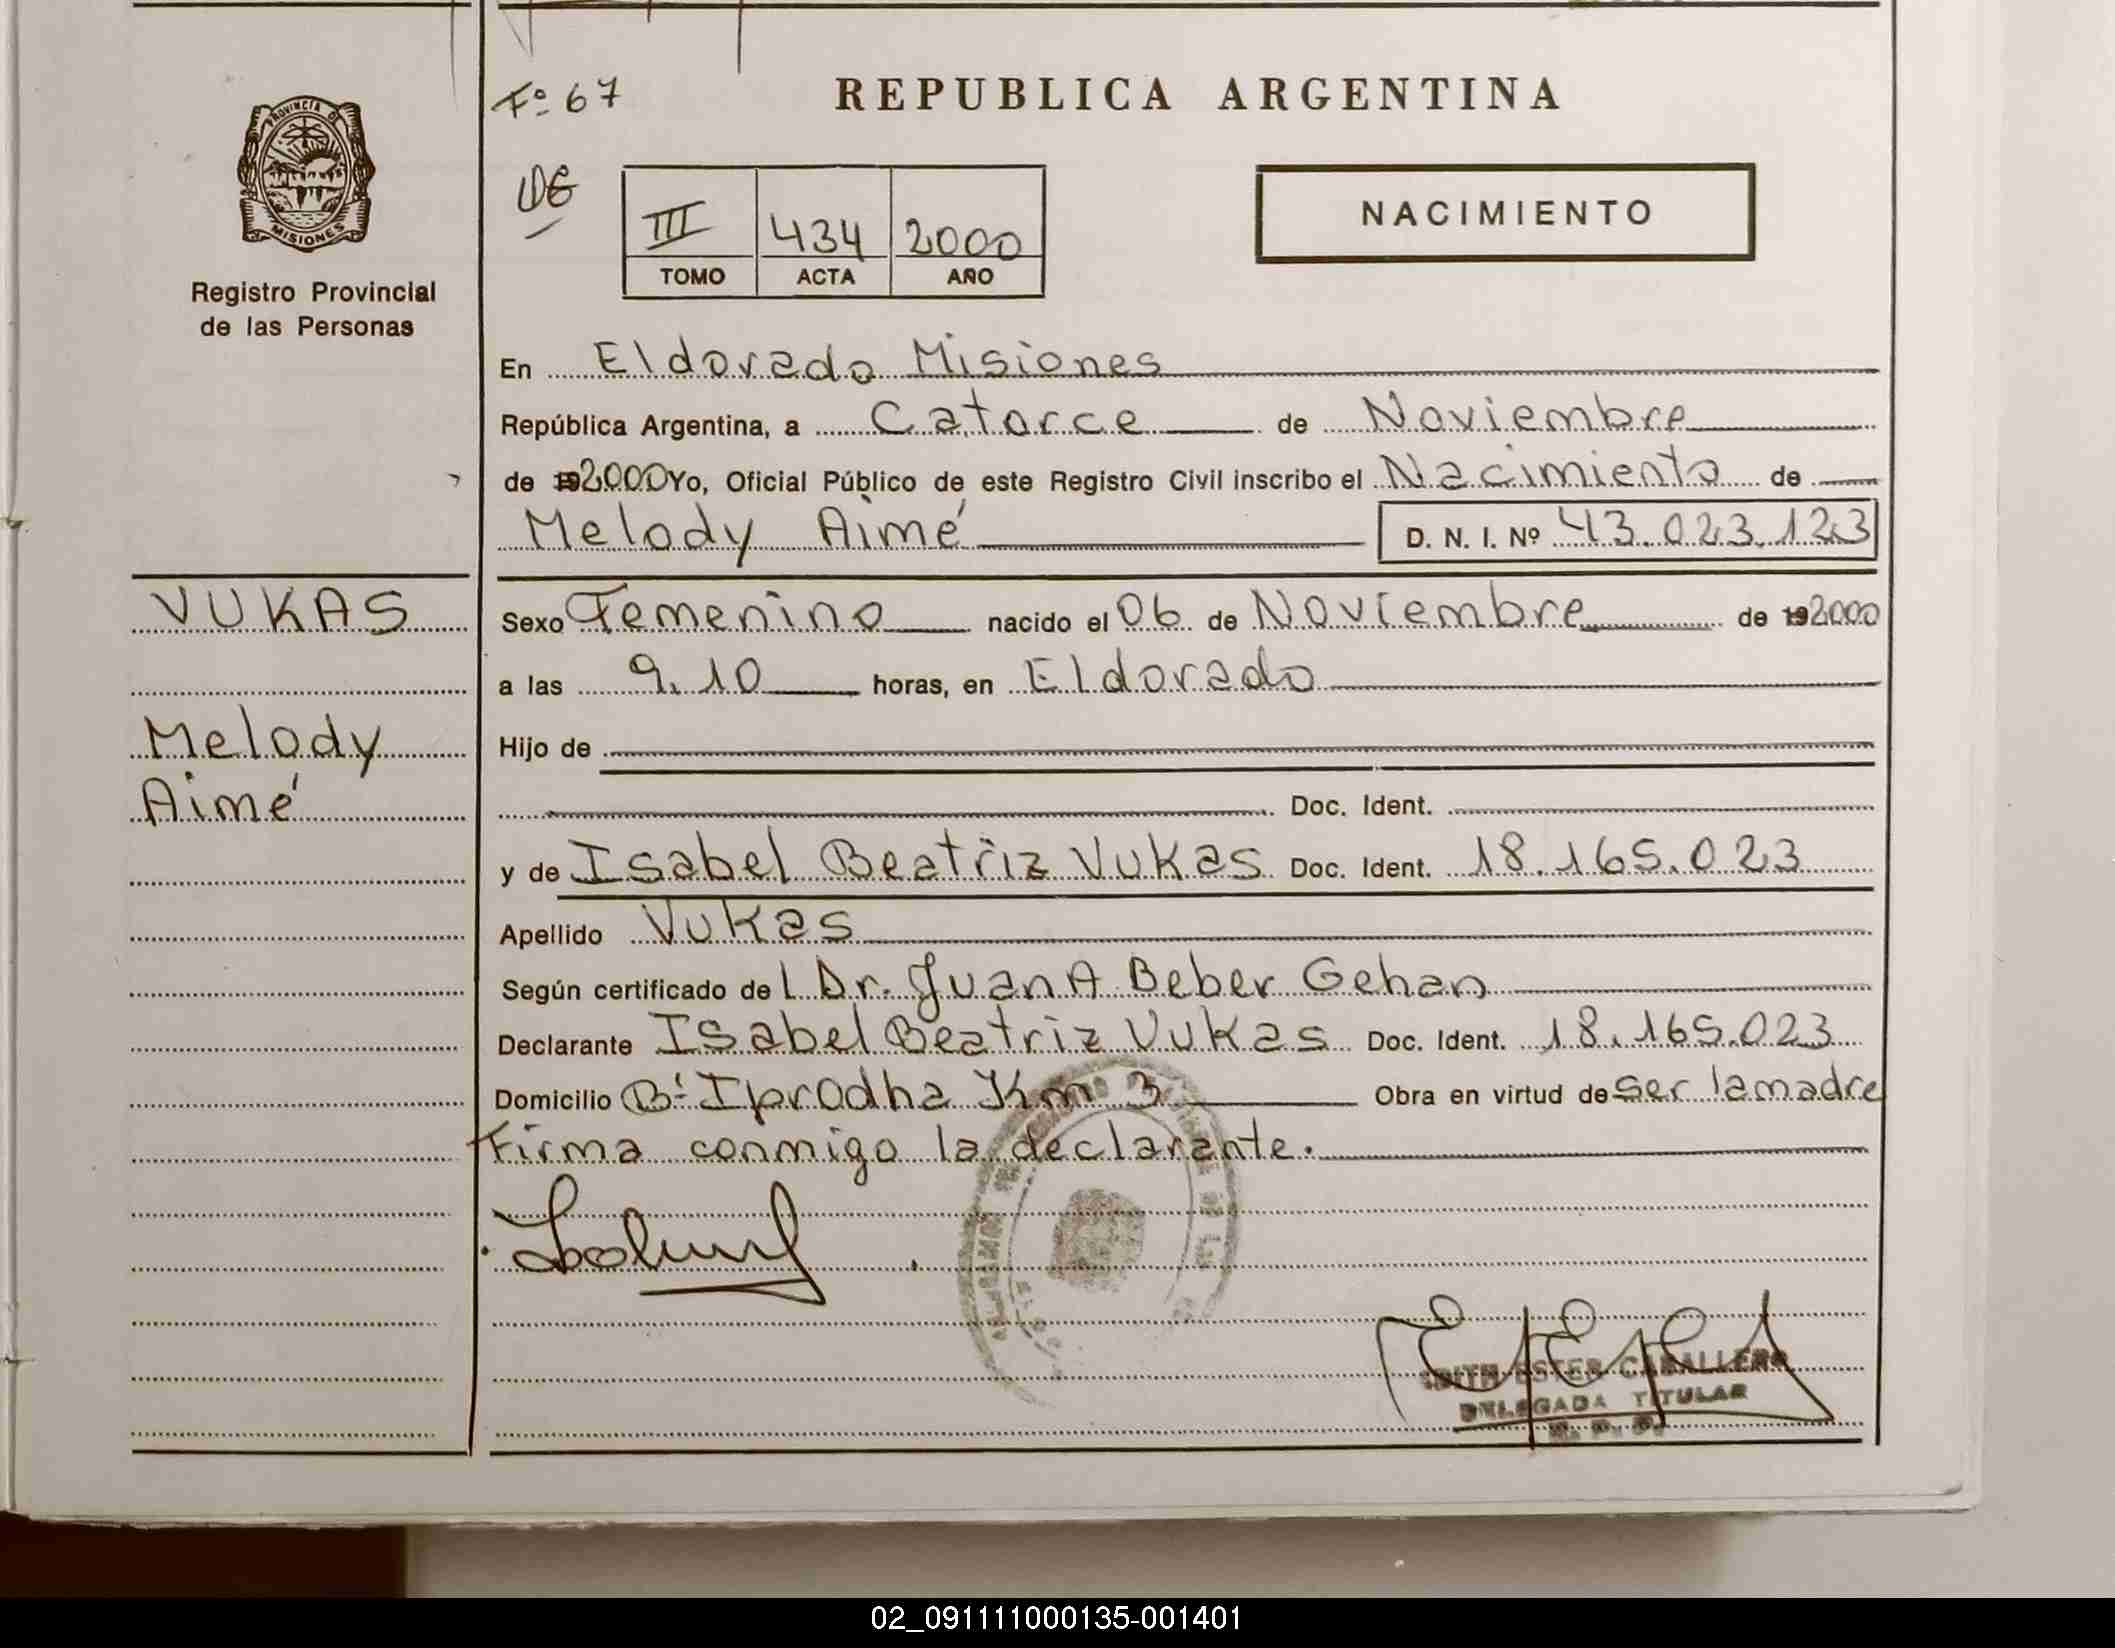 Fº 67
REPUBLICA ARGENTINA
PROVINCIA DE
MISIONES
Registro Provincial
de las Personas
III 434 2000
TOMO ACTA AÑO
NACIMIENTO
En Eldorado Misiones
República Argentina, a Catorce de Noviembre
de 192000 Yo, Oficial Público de este Registro Civil inscribo el Nacimiento de
Melody Aimé D. N. I. Nº 43.023.123
VUKAS
Melody
Aimé
Sexo Femenino nacido el 06 de Noviembre de 192000
a las 9.10 horas, en Eldorado
Hijo de
Doc. Ident.
y de Isabel Beatriz Vukas Doc. Ident. 18.165.023
Apellido Vukas
Según certificado de l Dr. Juan A Beber Gehan
Declarante Isabel Beatriz Vukas Doc. Ident. 18.165.023
Domicilio Bº Iprodha Km 3 Obra en virtud de ser la madre
Firma conmigo la declarante.
EDITH ESTER CABALLERO
DELEGADA TITULAR
02_091111000135-001401